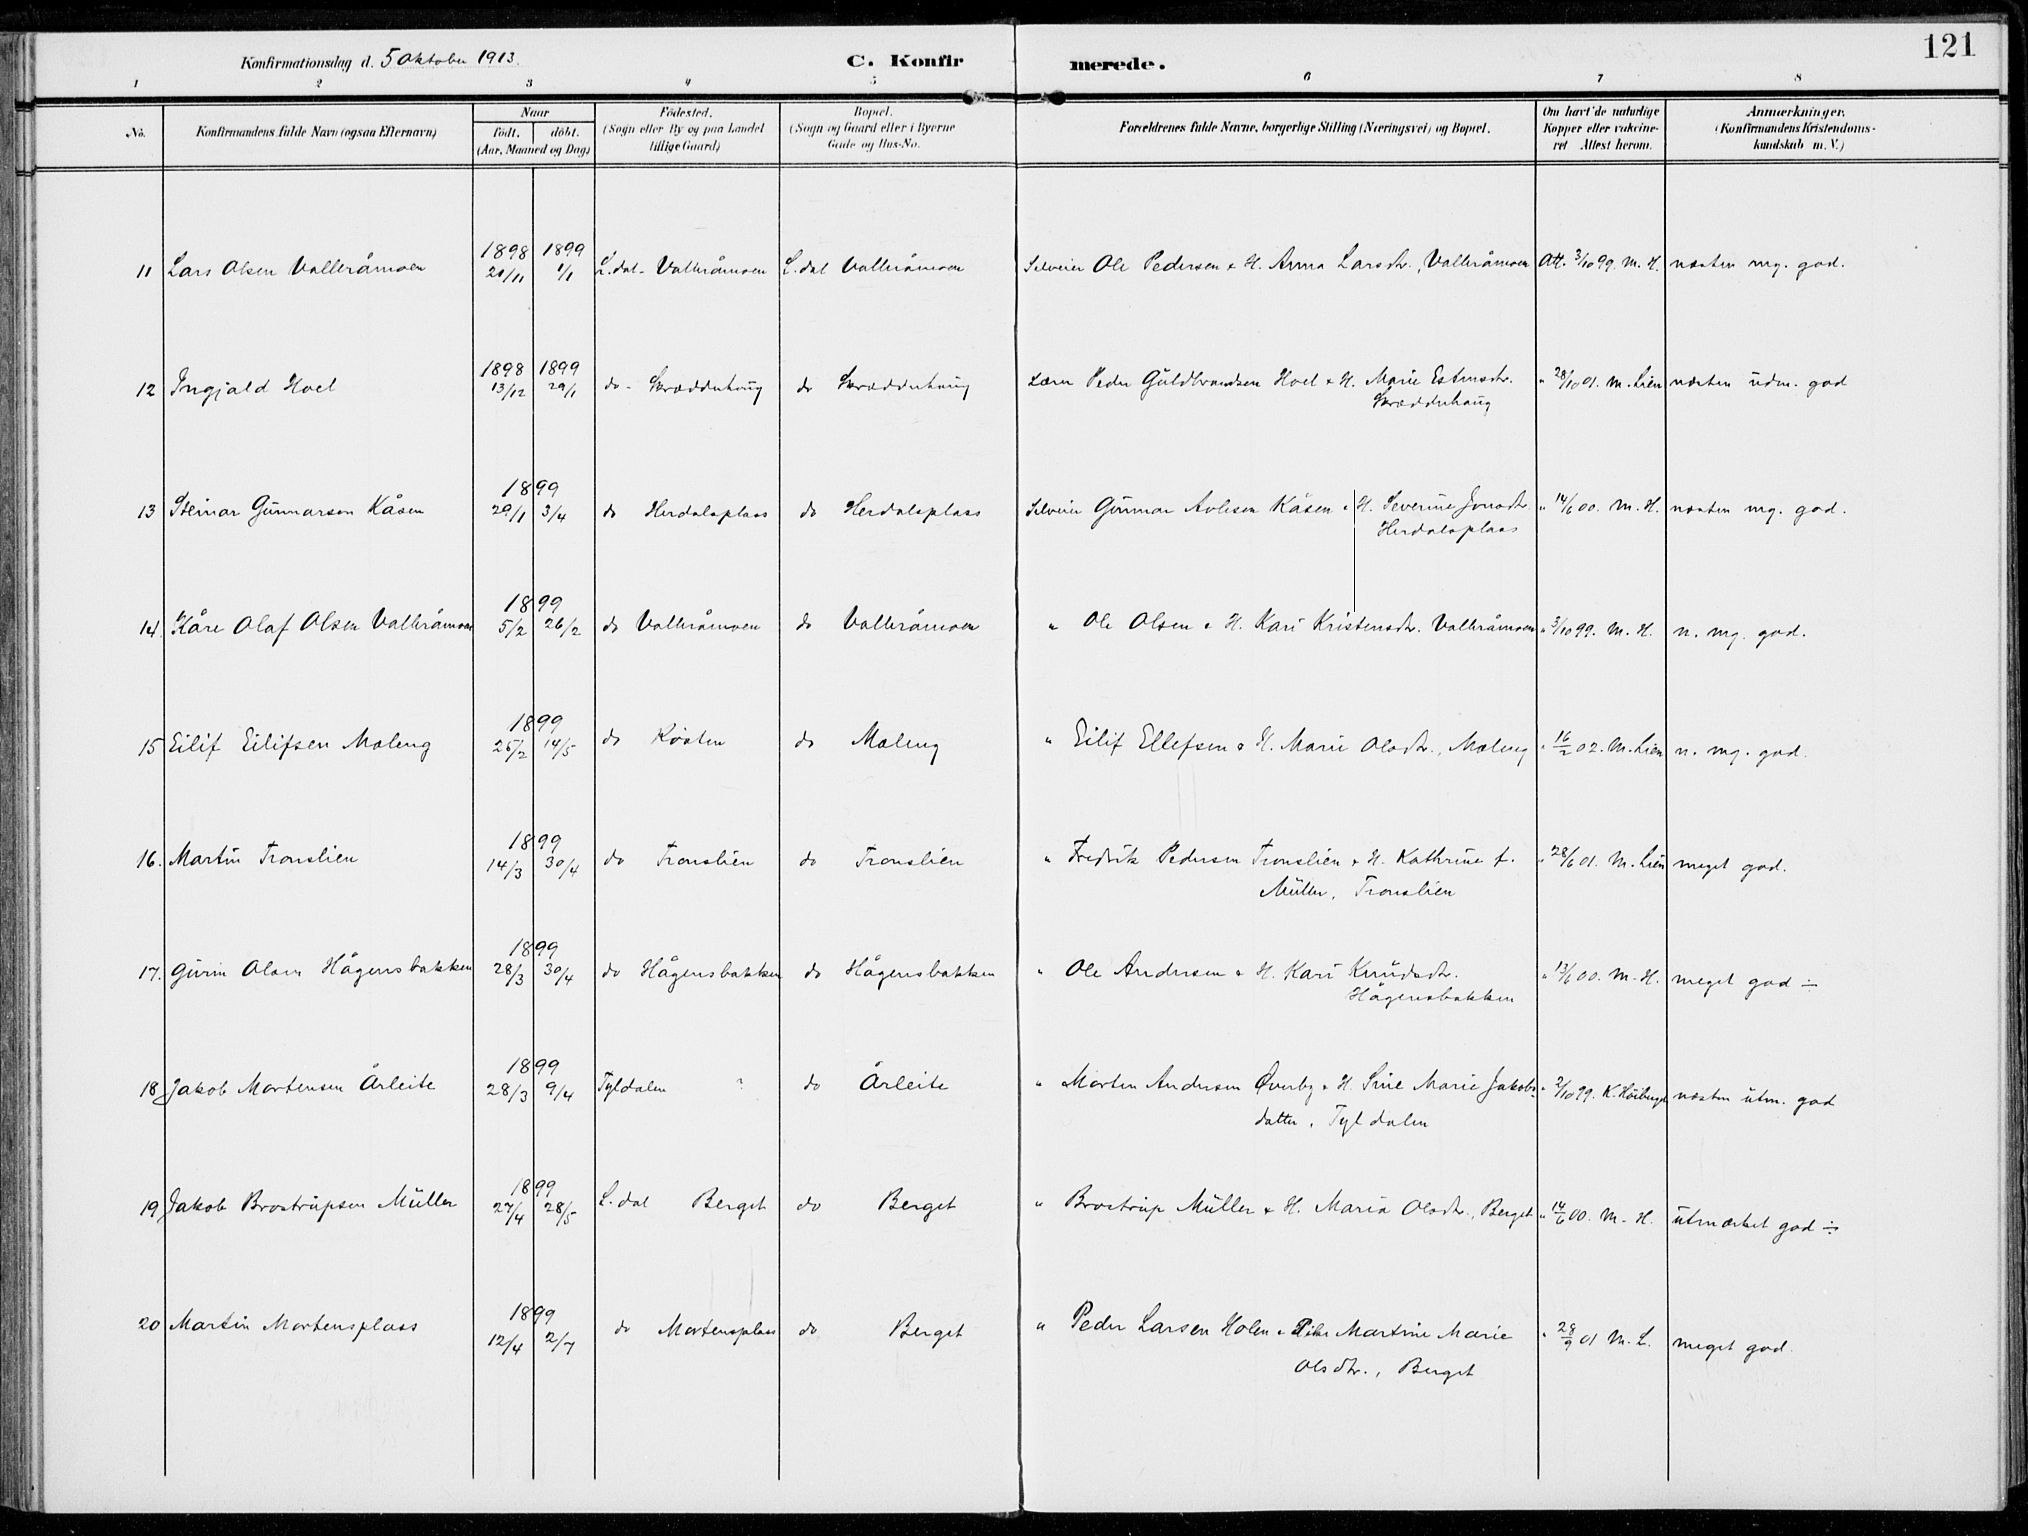 Konfirmationsdag d. 5 Oktober 1913. C. Konfirmerede. 121
1 2 3 4 5 6 7 8
No. Konfirmandens fulde Navn (ogsaa Efternavn) Naar født. døbt. (Aar, Maaned og Dag) Fødested. (Sogn eller By og paa Landet tillige Gaard) Bopæl. (Sogn og Gaard eller i Byerne Gade og Hus-No. Forældrenes fulde Navne, borgerlige Stilling (Næringsvei) og Bopæl. Om havt de naturlige Kopper eller vakcineret Attest herom. Anmærkninger. (Konfirmandens Kristendomskundskab m. V.)
1898 1899
11 Lars Olsen Vallråmoen 20/11 1/1 L.dal - Vallråmoen L.dal Vallråmoen Selveier Ole Pedersen & H. Anna Larsdtr., Vallråmoen Att. 3/10 99. M. H. næsten mg. god.
1898 1899
12 Ingjald Hoel 13/12 29/1 do - Skrædderhaug do Skrædderhaug Lærer Peder Guldbrandsen Hoel & H. Marie Estensdtr. " 28/10 01. M. Lien næsten udm. god
Skrædderhaug
1899
13 Steinar Gunnarson Kåsen 29/1 3/4 do Herdalsplass do Herdalsplass Selveier Gunnar Avleson Kåsen & H. Severine Jonsdtr. " 14/6 00. M. H. næsten mg. god.
Herdalsplass
1899
14. Kåre Olaf Olsen Vallråmoen 5/2 26/2 do Vallråmoen do Vallråmoen " Ole Olsen & H. Kari Kristensdtr. Vallråmoen " 3/10 99. M. H. n. mg. god.
1899
15 Eilif Eilifsen Moleng 25/2 14/5 do Kösten do Moleng " Eilif Ellefsen & H. Marie Olsdtr., Moleng " 16/2 02. M. Lien n. mg. god.
1899
16. Martin Tronslien 14/3 30/4 do Tronslien do Tronslien " Fredrik Pedersen Tronslien & H. Kathrine f. " 28/6 01. M. Lien meget god.
Müller, Tronslien
1899
17. Gurin Olsen Hågensbakken 28/3 30/4 do Hågensbakken do Hågensbakken " Ole Andersen & H. Kari Knudsdtr. " 13/6 00. M. H. meget god ÷
Hågensbakken
1899
18 Jakob Mortensen Årleite 28/3 9/4 Tyldalen ? do Årleite " Morten Andersen Øverby & H. Sine Marie Jakobs- " 2/10 99. K. næsten utm. god
datter, Tyldalen
1899
19 Jakob Brostrupsen Müller 27/4 28/5 L.dal Berget do Berget " Brostrup Müller & H. Maria Olsdtr., Berget " 14/6 00. M. H. utmærket god ÷
1899
20 Martin Mortensplass 12/4 2/7 do Mortensplass do Berget " Peder Larsen Holen & Pike Martine Marie " 28/9 01 M. L. meget god.
Olsdtr., Berget